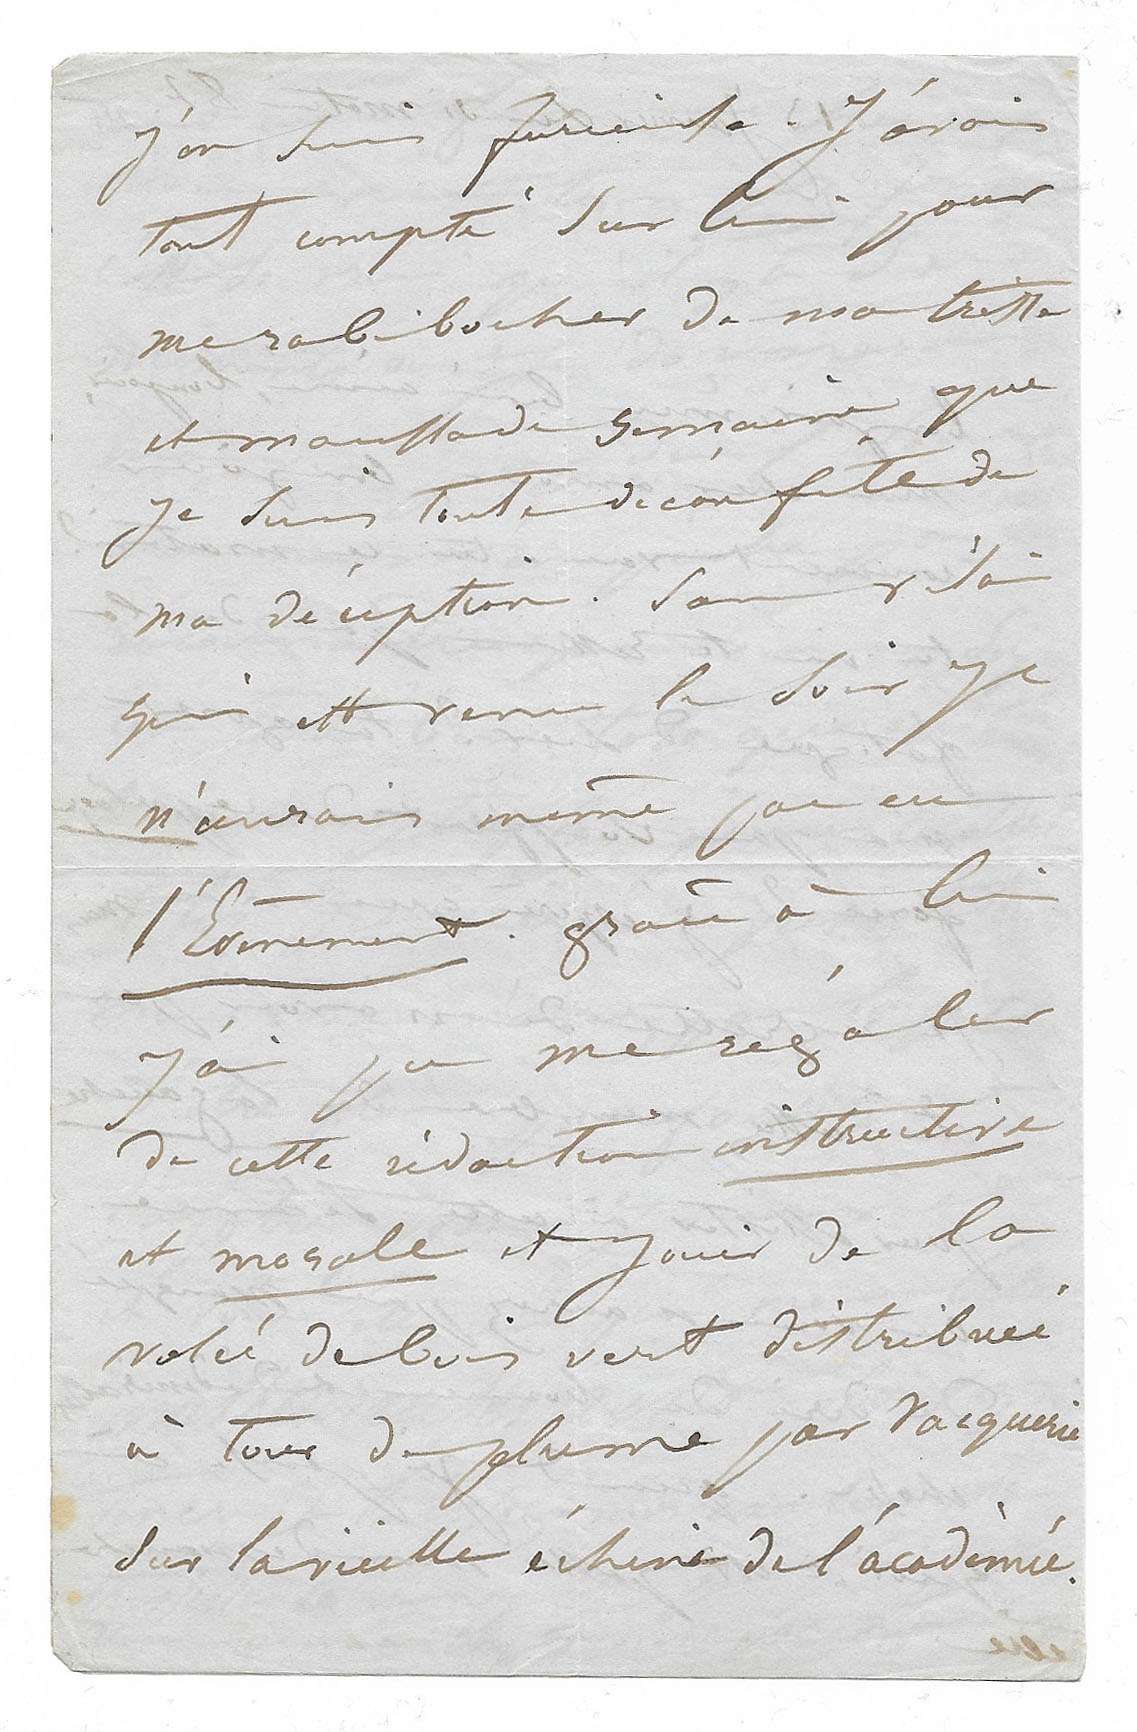 j'en suis furieuse. J'avais
tant compté sur lui pour
me rabibocher de ma triste
et maussade semaine que
je suis toute déconfite de
ma déception. Sans
qui est venu le soir je
n'aurais même pas eu
l'Évènement. grâce à lui
j'ai pu me régaler
de cette rédaction instructive
et morale et jouir de la
volée de bois vert distribuée
à tour de plume par Vacquerie
sur la vieille échine de l'académie.